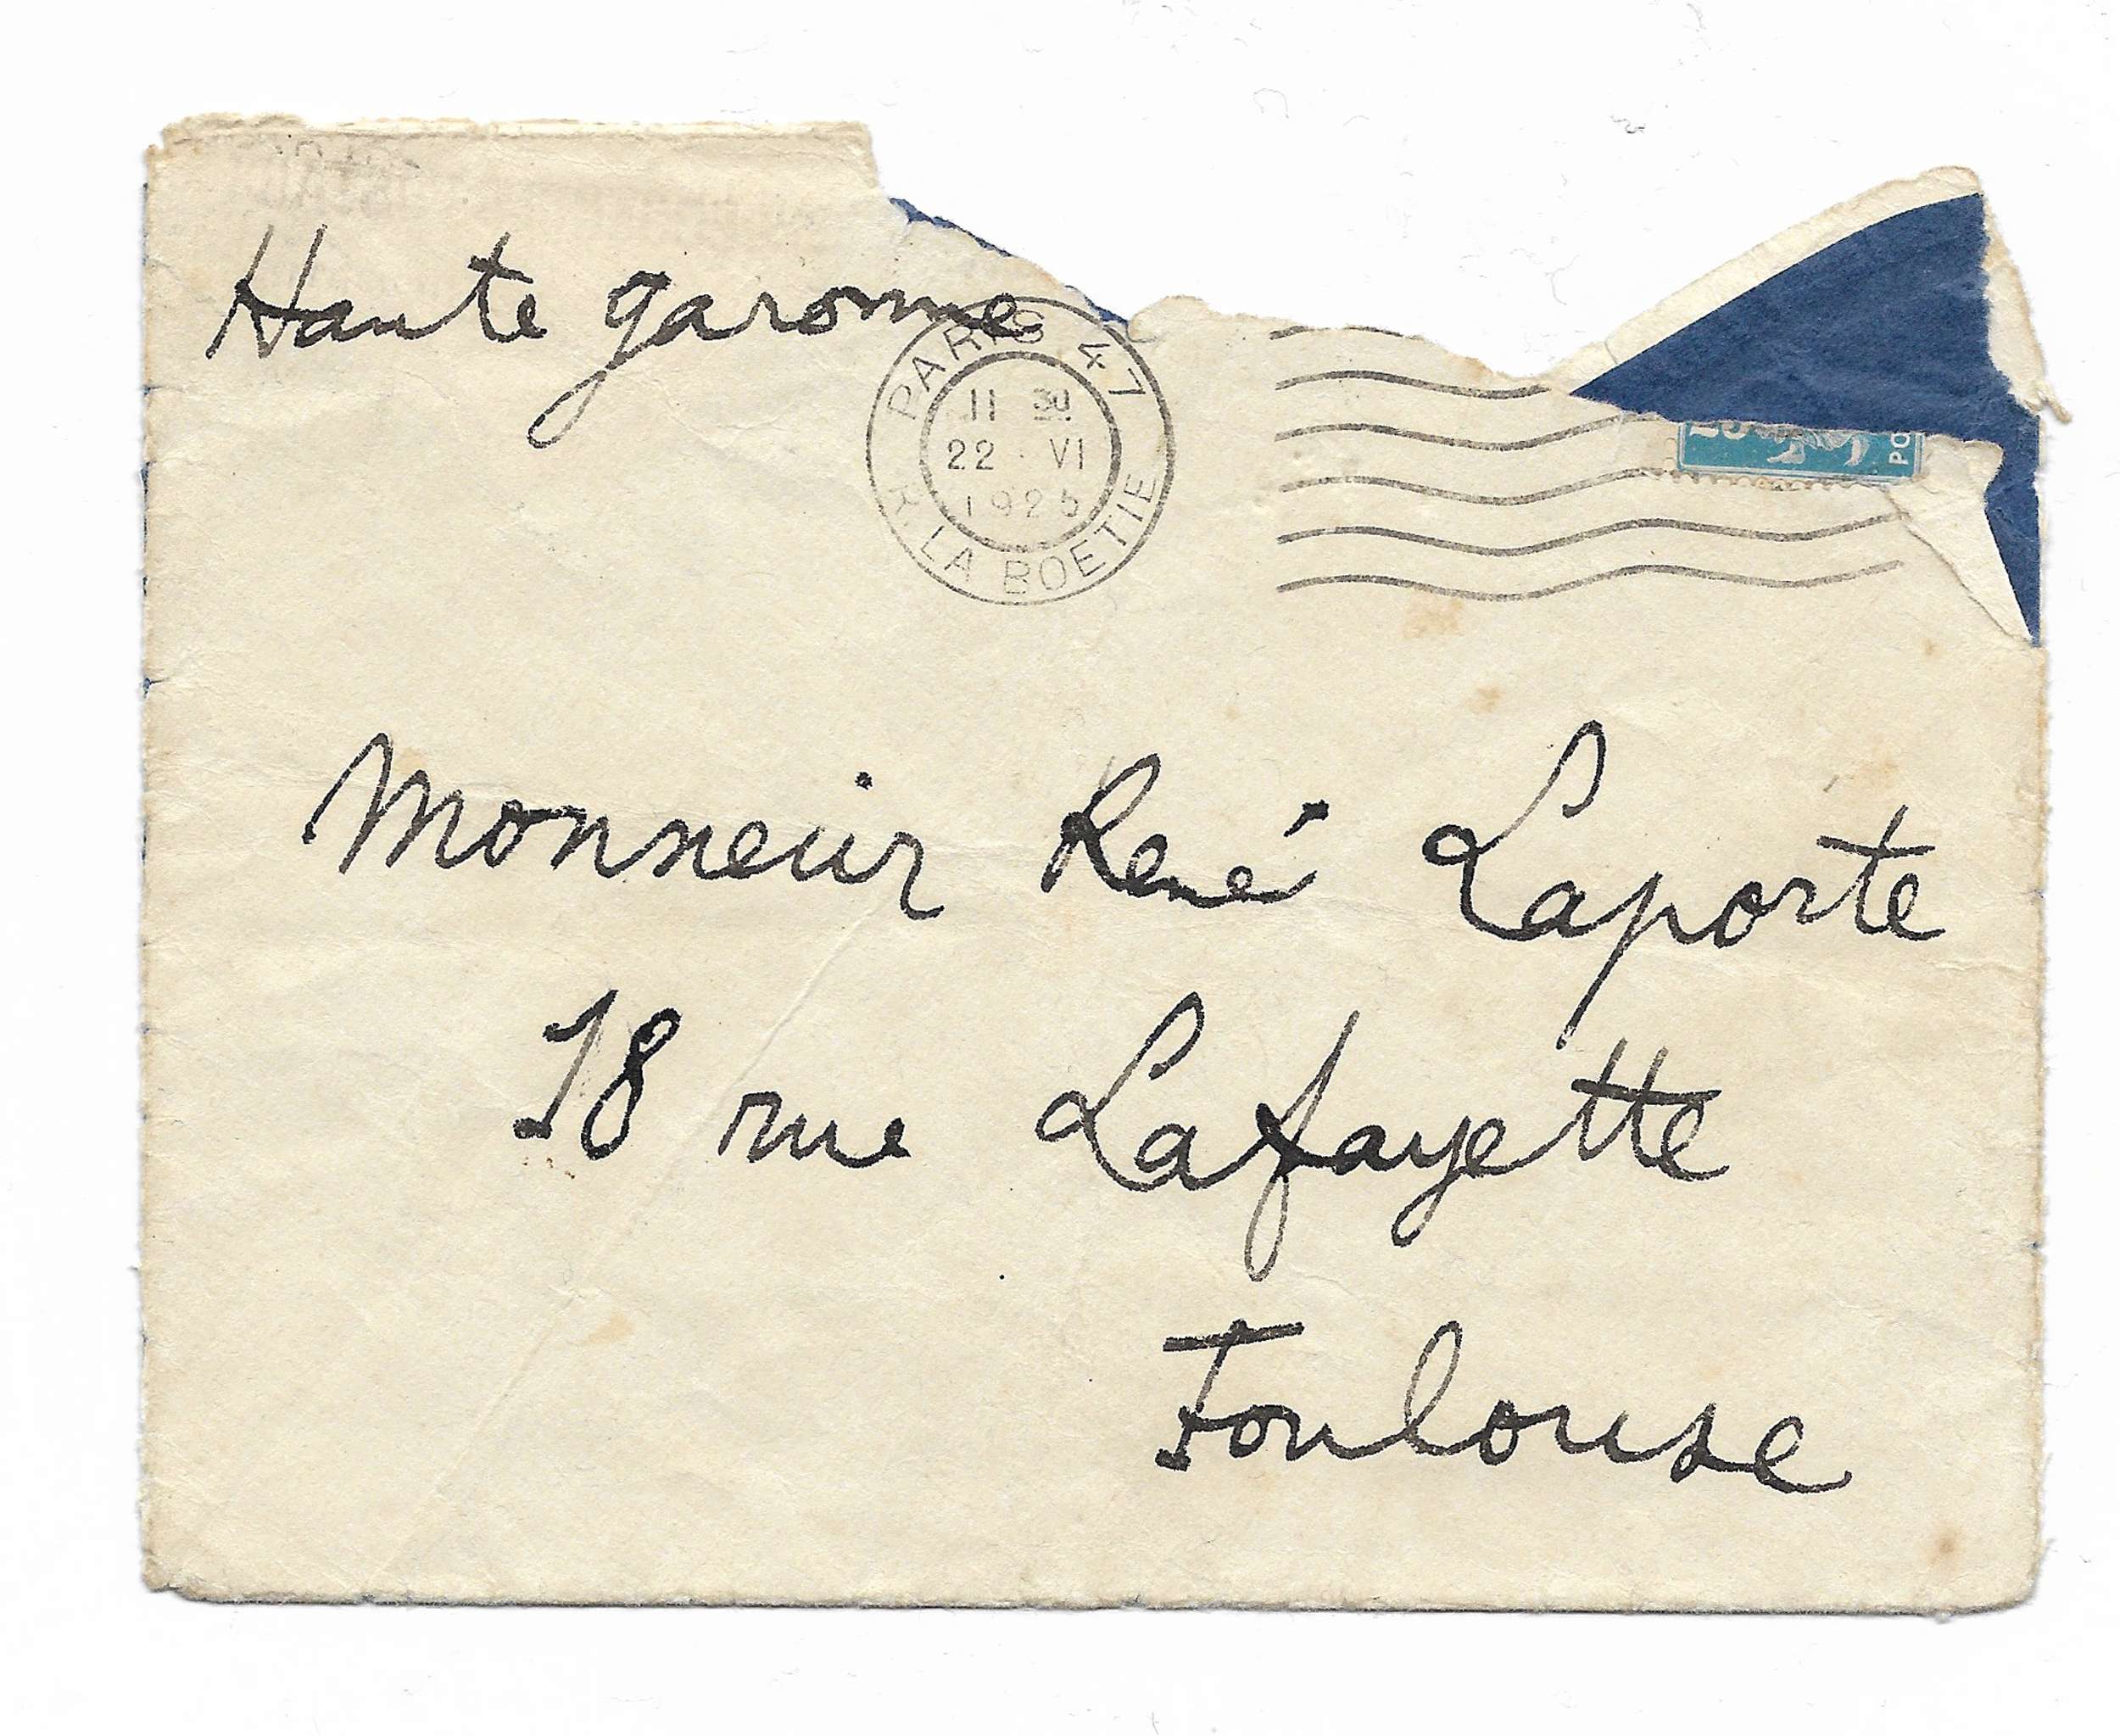 Haute garonne
PARIS 47
11 30
22 VI
1925
R. LA BOETIE
PO
Monsieur René Laporte
18 rue Lafayette
Toulouse